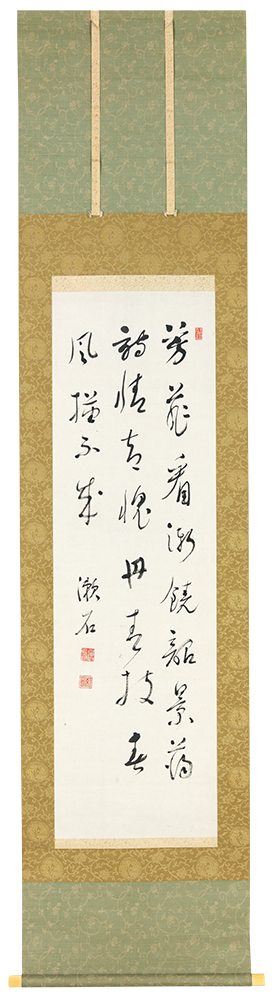 芳菲看漸饒韶景蕩
詩情却愧丹青技春
風描不成
漱石